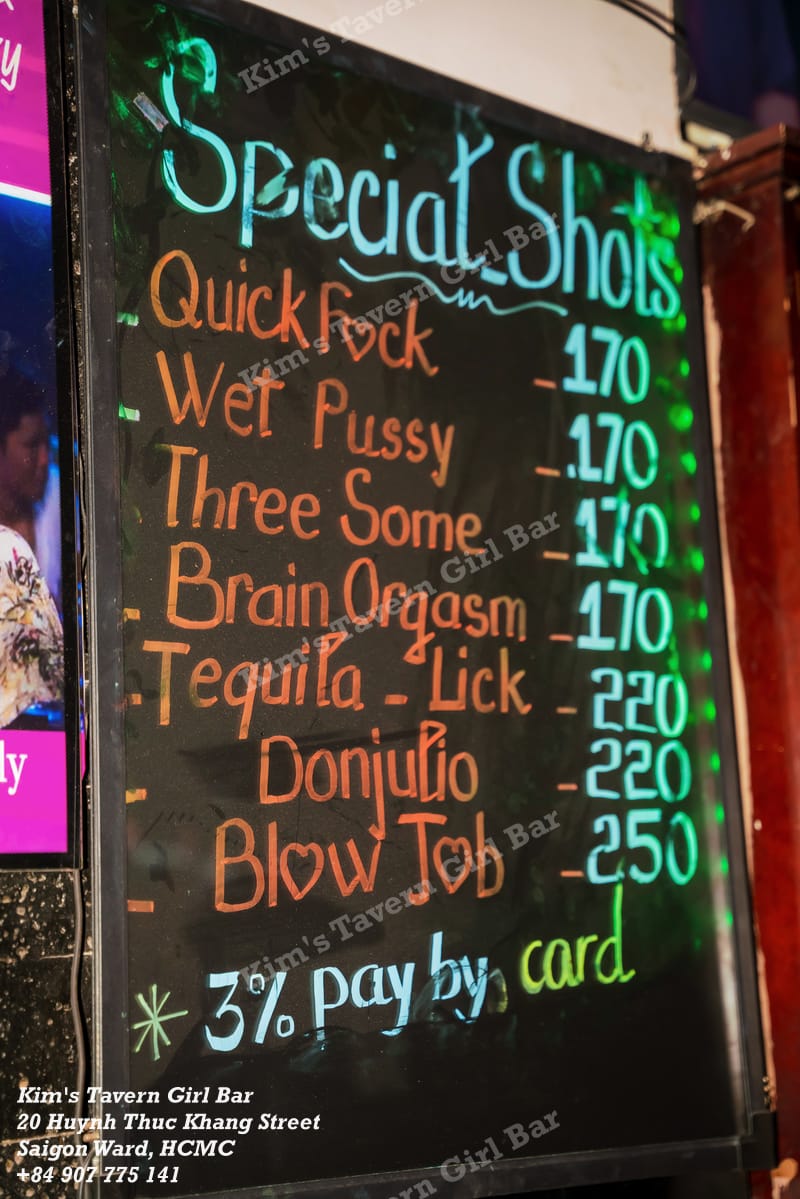 Special Shots
Quick F♡ck _ 170
Wet Pussy _ 170
Three Some _ 170
Brain Orgasm _ 170
Tequila _ Lick _ 220
Donjulio _ 220
Blow Job _ 250
* 3% pay by card
ly
Kim's Tavern Girl Bar
Kim's Tavern Girl Bar
Kim's Tavern Girl Bar
Kim's Tavern Girl Bar
Kim's Tavern Girl Bar
20 Huynh Thuc Khang Street
Saigon Ward, HCMC
+84 907 775 141